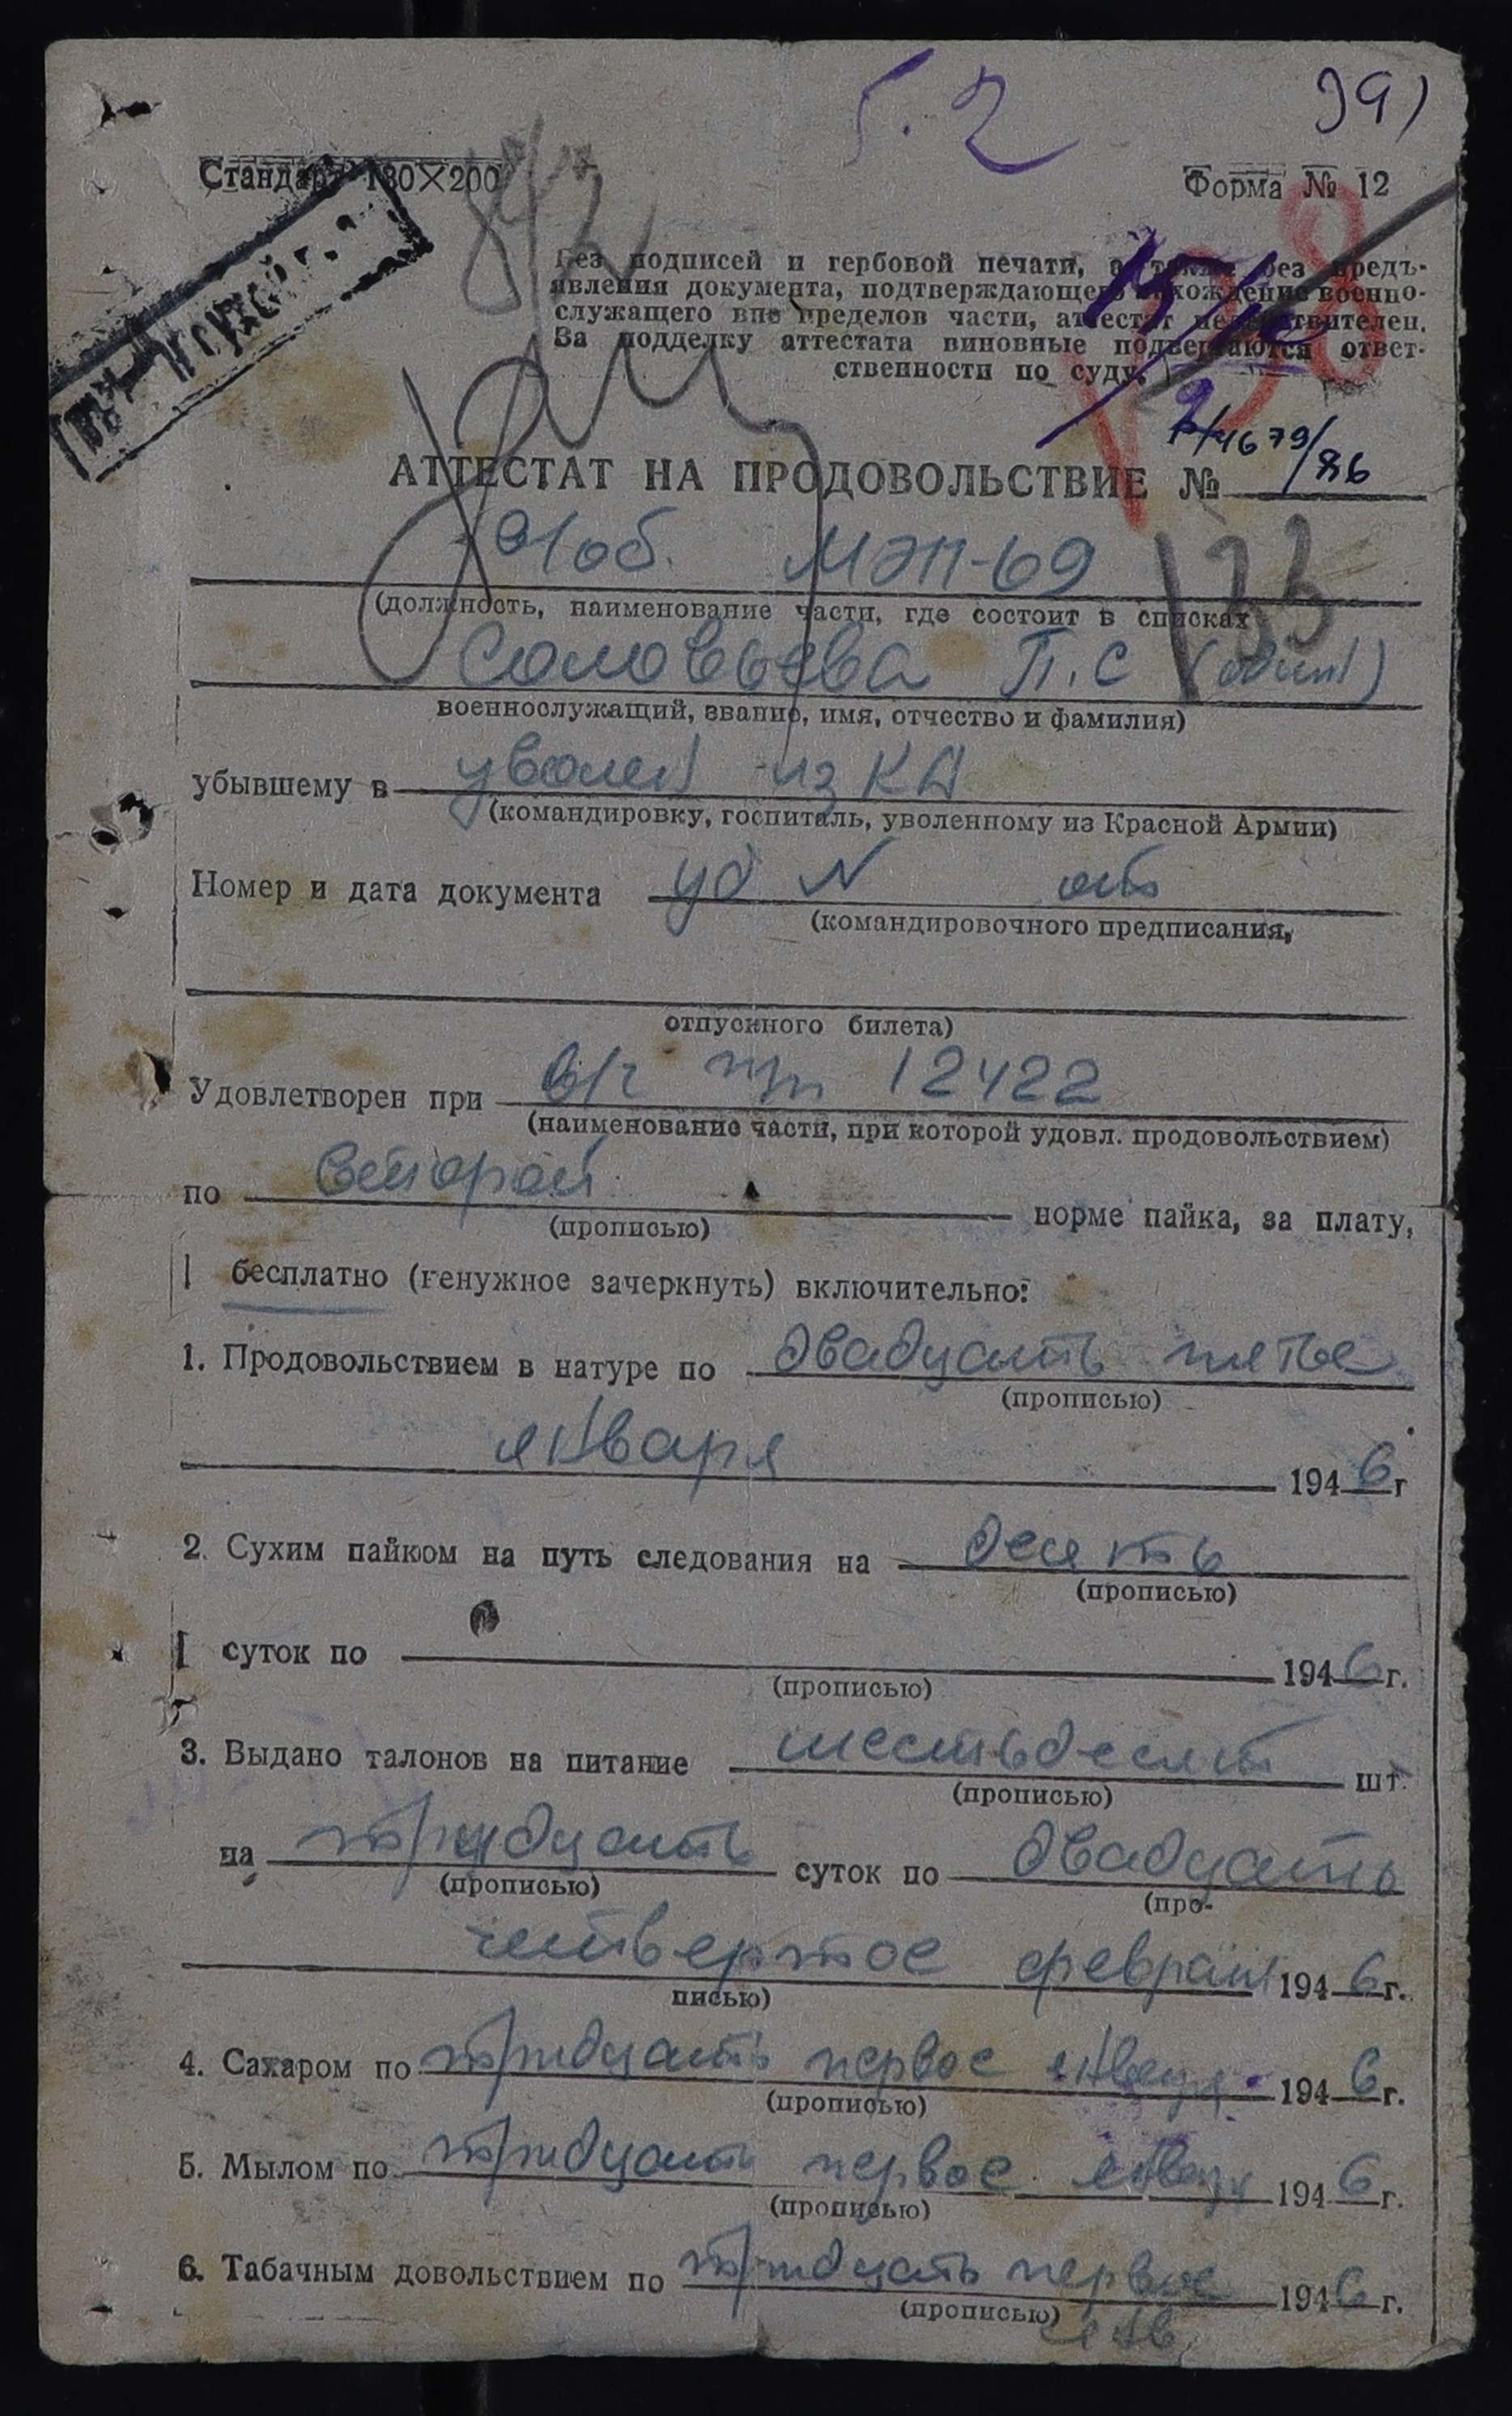 5.2
391
Стандарт 130×200
Форма № 12
Без подписей и гербовой печати, а также без предъ-
явления документа, подтверждающего нахождение военно-
служащего вне пределов части, аттестат недействителен.
За подделку аттестата виновные подвергаются ответ-
ственности по суду.
АТТЕСТАТ НА ПРОДОВОЛЬСТВИЕ № /86
91 об. МЭП-69
133
(должность, наименование части, где состоит в списках
Соловьева П.С (один)
военнослужащий, звание, имя, отчество и фамилия)
убывшему в уволен из КА
(командировку, госпиталь, уволенному из Красной Армии)
Номер и дата документа уд N от
(командировочного предписания,
отпускного билета)
Удовлетворен при в/ч пп 12422
(наименование части, при которой удовл. продовольствием)
по второй норме пайка, за плату,
(прописью)
бесплатно (ненужное зачеркнуть) включительно:
1. Продовольствием в натуре по двадцать пятое
(прописью)
января 1946 г
2. Сухим пайком на путь следования на десять
(прописью)
суток по 1946 г.
(прописью)
3. Выдано талонов на питание шестьдесят шт.
(прописью)
на тридцать суток по двадцать
(прописью) (про-
четвертое февраля 1946 г.
писью)
4. Сахаром по тридцать первое января 1946 г.
(прописью)
5. Мылом по тридцать первое января 1946 г.
(прописью)
6. Табачным довольствием по тридцать первое 1946 г.
(прописью) янв